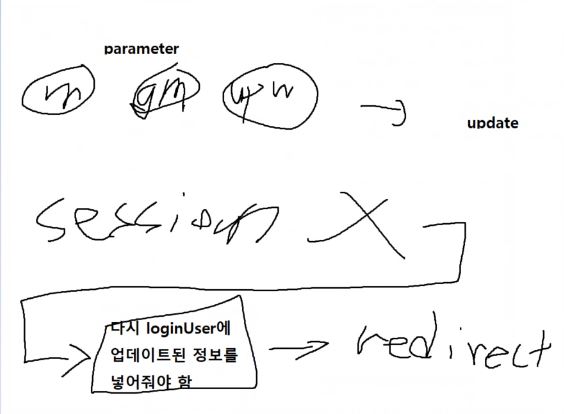 parameter
m gm upw
update
session X
다시 loginUser에
업데이트된 정보를
넣어줘야 함
redirect